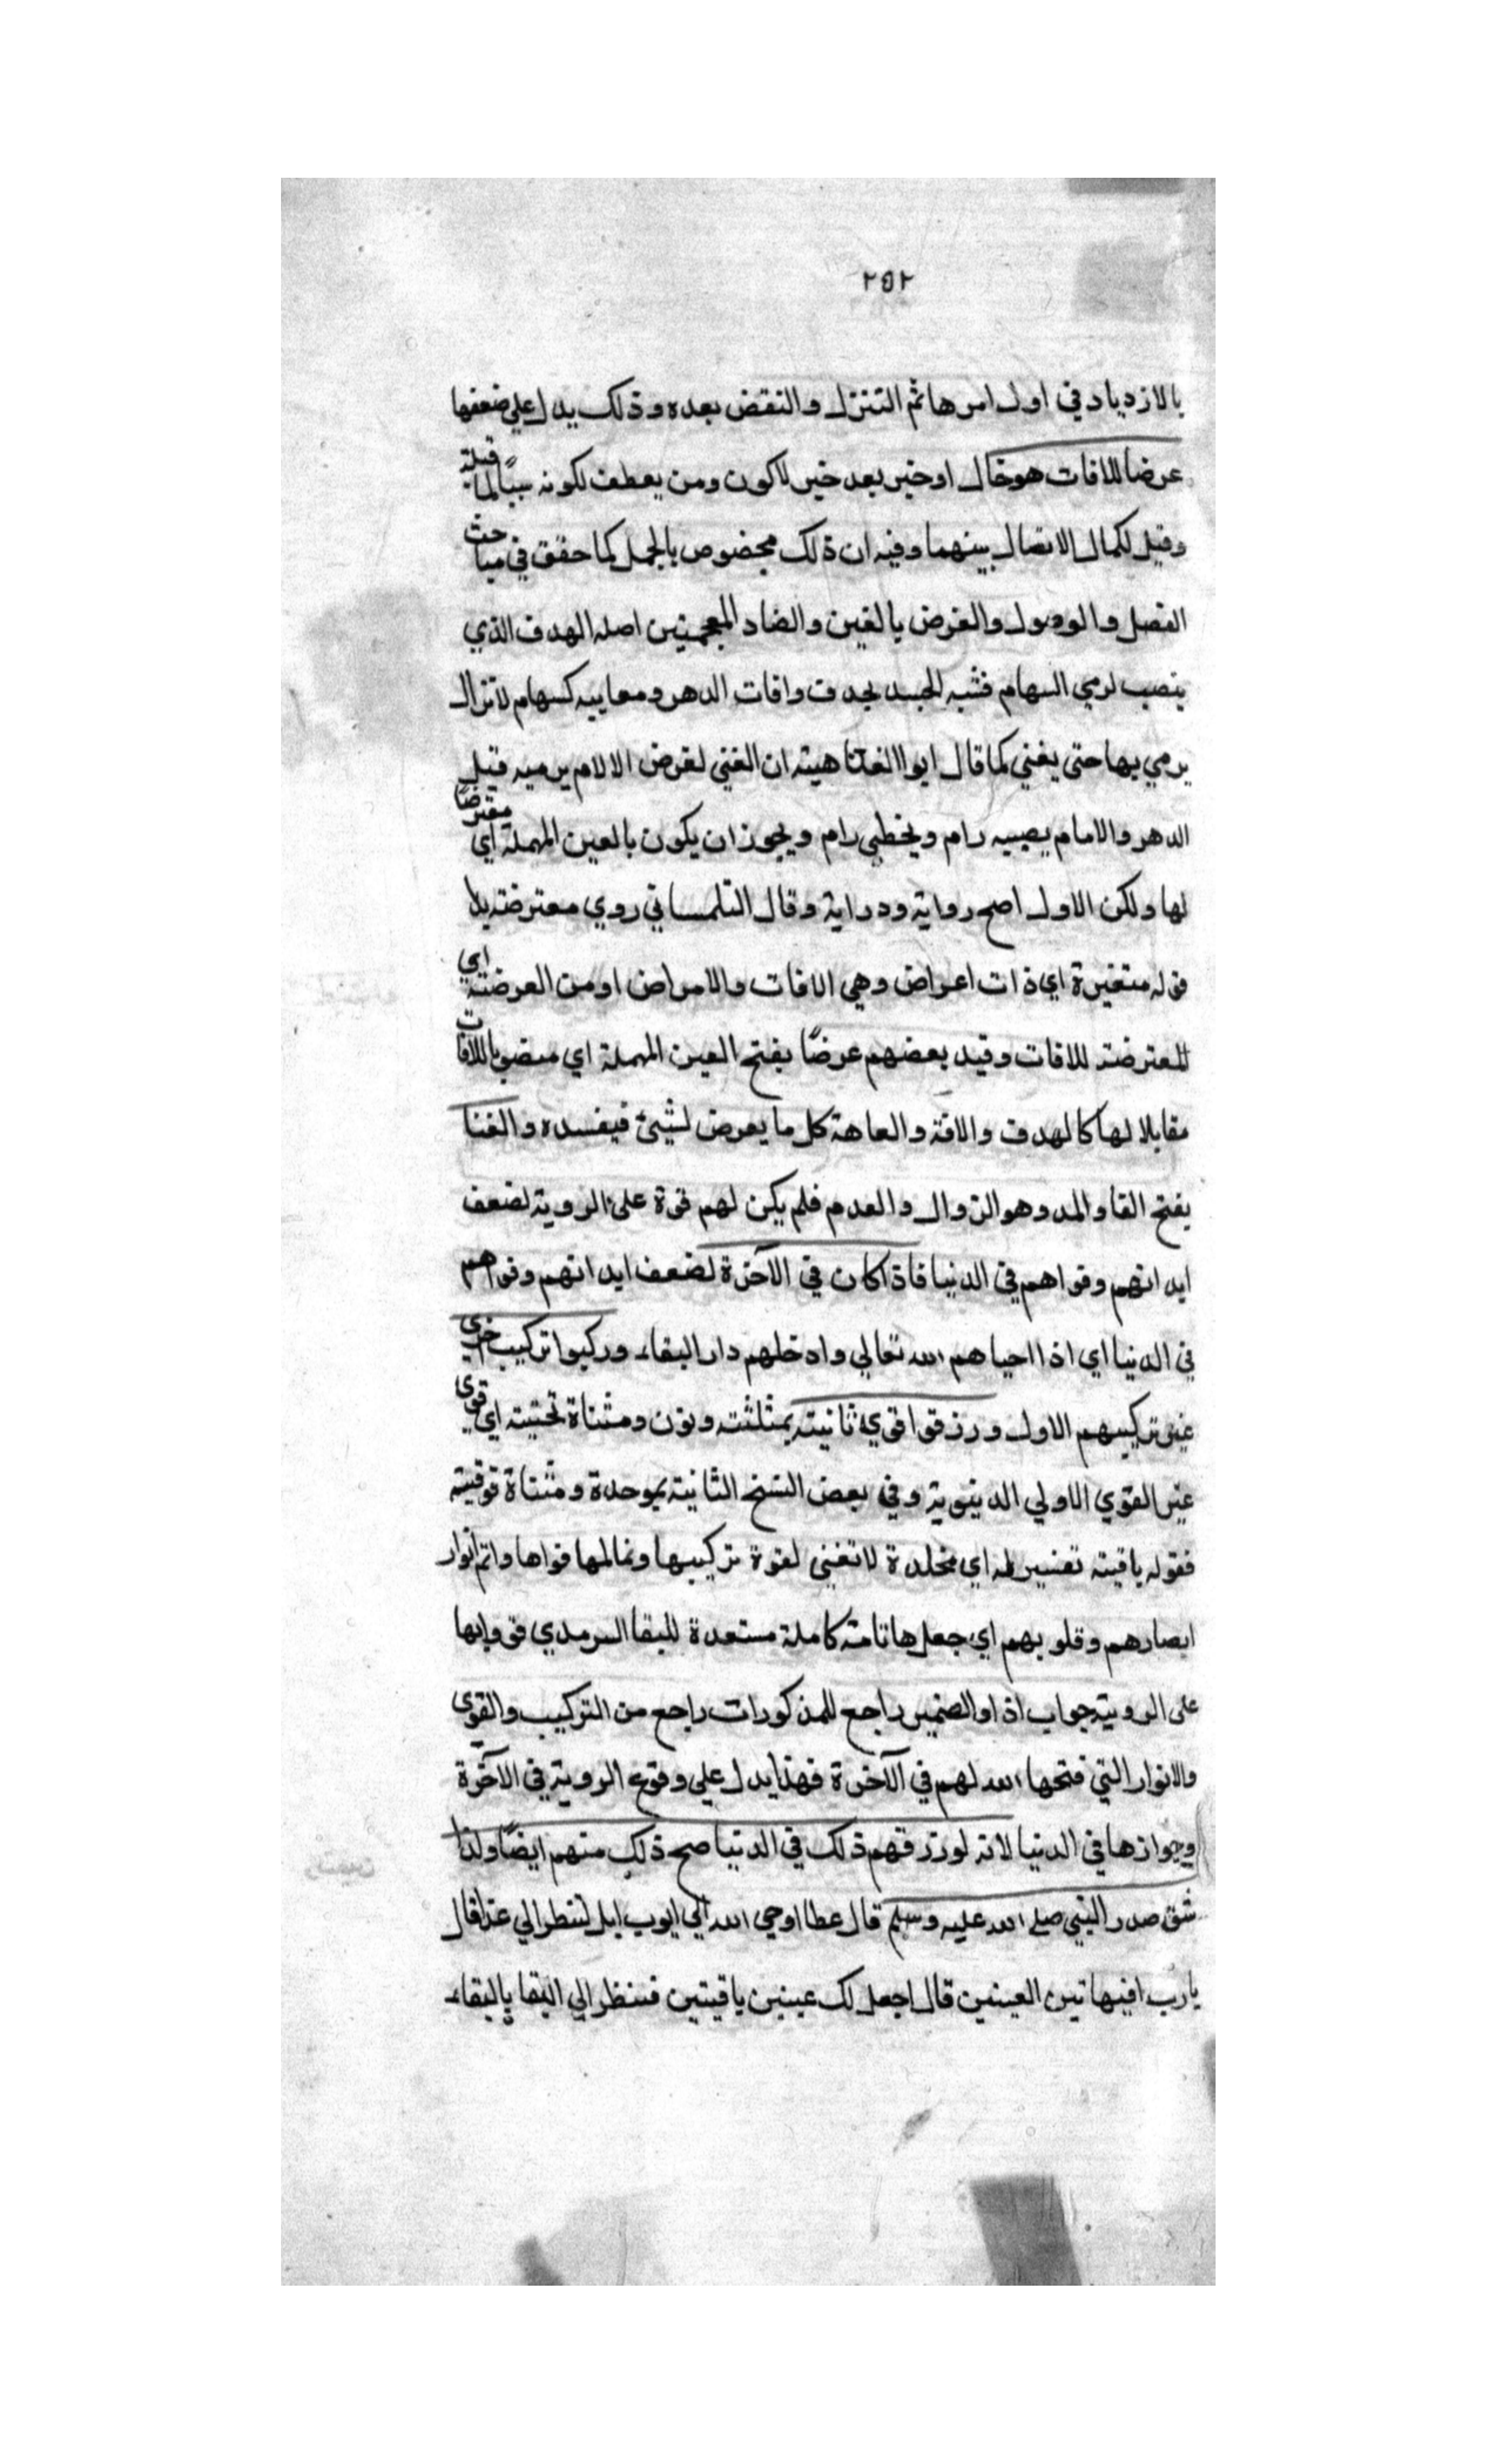 ٢٥٢
بالازدياد في اول امرها ثم التنزل والنقض بعده وذلك يدل علي ضعفها
عرضا للافات هو حال او خبر بعد خبر لاكون ومن يعطف لكونه سببًا لما قبله
وقيل لكمال الاتصال بينهما وفيه ان ذلك مخصوص بالجمل كما حقق في مباحث
الفصل والوصول والغرض بالغين والضاد المعجمتين اصله الهدف الذي
ينصب لرمي السهام فشبه الجسد بهدف وافات الدهر ومصايبه كسهام لا تزال
يرمي بها حتى يفني كما قال ابو العتاهيته ان الفني لغرض الالام يرميه قبل
الدهر والامام يصيبه رام ويخطي رام ويجوز ان يكون بالعين المهملة اي معترضًا
لها ولكن الاول اصح رواية ودراية وقال التلمساني روي معترضته بلا
قوله متغيرة اي ذات اعراض وهي الافات والامراض او من العرضته اي
المعترضته للافات وقيد بعضهم عرضًا بفتح العين المهملة اي منصوبا للافات
مقابلا لها كالهدف والافة والعاهة كل ما يعرض لشيئ فيفسده والفنا
بفتح الفا والمد وهو الزوال والعدم فلم يكن لهم قوة على الروية لضعف
ابدانهم وقواهم في الدنيا فاذا كان في الآخرة لضعف ابدانهم وقواهم
في الدنيا اي اذا احياهم الله تعالي وادخلهم دار البقاء وركبوا تركيب اخري
غير تركيبهم الاول ورزقوا قوي ثانيته بمثلثته ونون ومثناة تحتيته اي قوي
غير القوي الاولي الدنيوية وفي بعض النسخ الثانيته بموحدة ومثناة فوقيته
فقوله باقيته تفسير له اي مخلدة لا تفني لقوة تركيبها وتمالها قواها واتم انوار
ابصارهم وقلوبهم اي جعلها تامته كاملة مستعدة للبقا السرمدي قووا بها
على الروية جواب اذا والضمير راجع للمذكورات راجع من التركيب والقوي
والانوار التي فتحها الله لهم في الآخرة فهذا يدل علي وقوع الروية في الآخرة
وجوازها في الدنيا لانه لو رزقهم ذلك في الدنيا صح ذلك منهم ايضًا ولذا
شق صدر النبي صلى الله عليه وسلم قال عطا اوحي الله الي ايوب ابل لتنظر الي غدا قال
يارب افبهاتين العينين قال اجعل لك عينين باقيتين فتنظر الي البقا بالبقاء